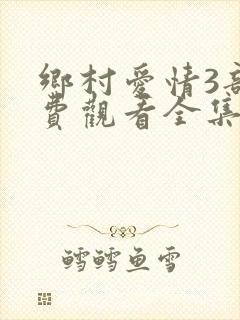 鄉村愛情3高
費觀看全集
鱈鱈鱼雪